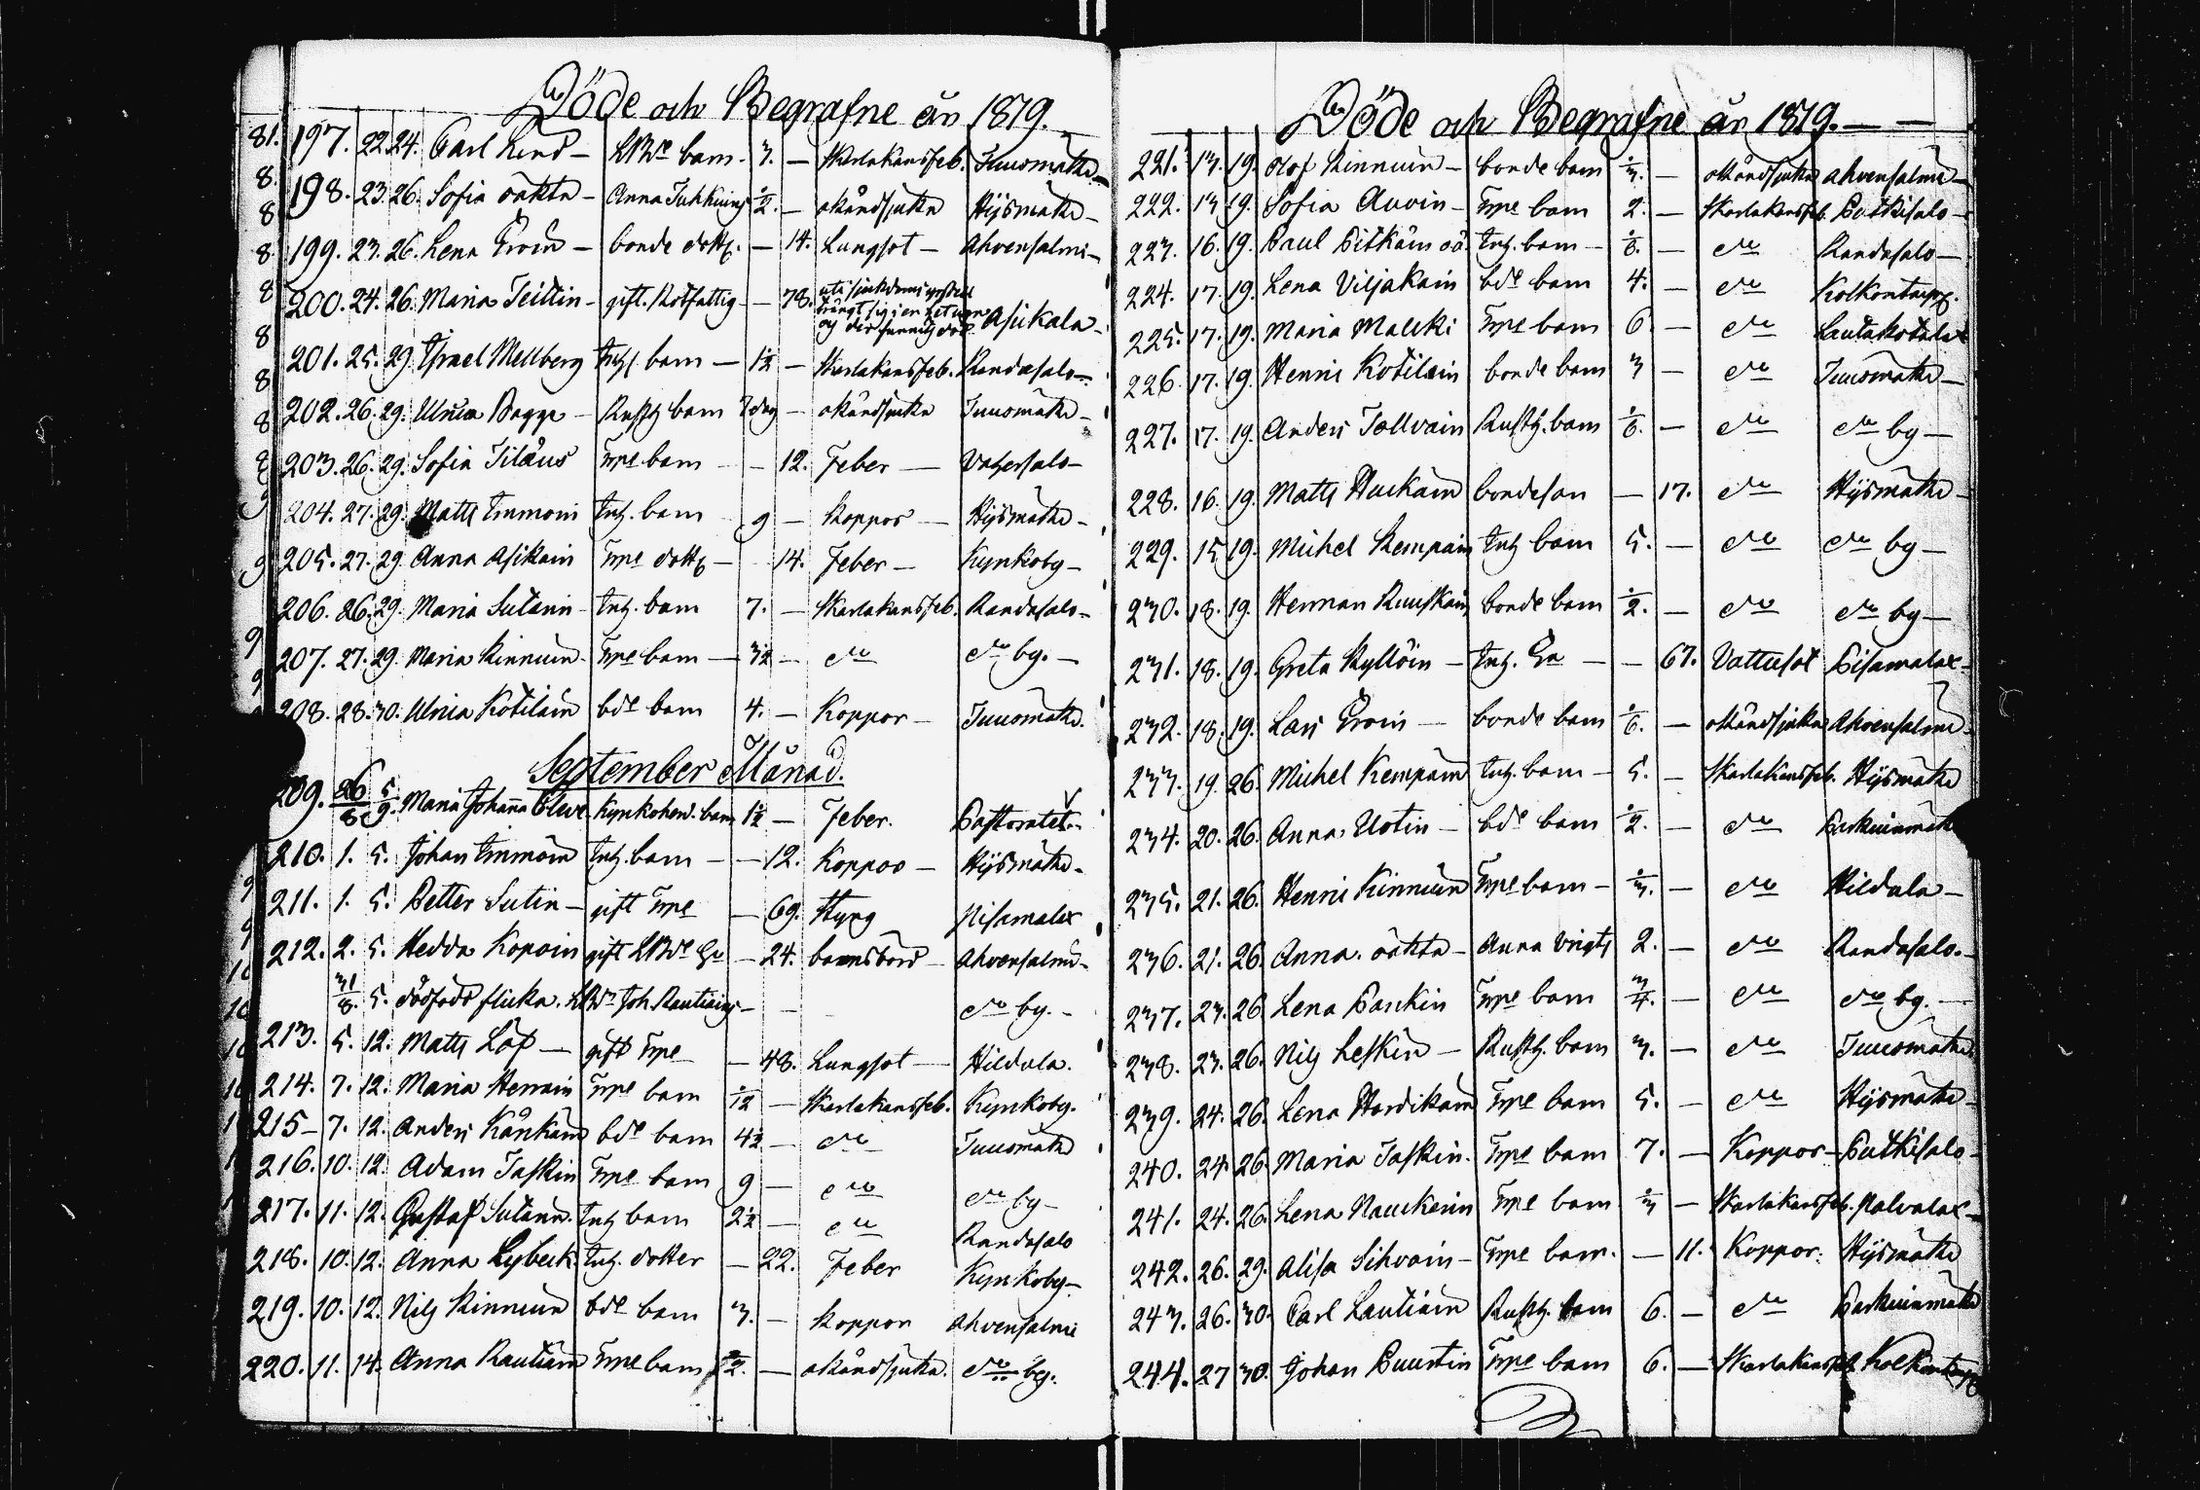 Döde och Begrafne år 1819.
197. 22. 24. Carl Lind - barn. 3. - Skarlakansfeb. Juuomäki
198. 23. 26. Sofia oäkta - Anna 1/2. - okändsjukn Hijsmäki -
199. 23. 26. Lena - bonde dottr. - 14. Lungsot - Ahvensalmi -
200. 24. 26. Maria Teittin - gift. Rotfattig - - 78. Asikala -
201. 25. 29. Israel Mellberg Inh. barn - 1 1/2 - Skarlakansfeb. Randasalo -
202. 26. 29. Ulrica Bagge - Rusth barn 3 dag - okändsjukn Juuomäki -
203. 26. 29. Sofia Tiläus Trpe barn - - 12. Feber - Vatersalo -
204. 27. 29. Matts Immoin Inh. barn 9 - Koppor - Hijsmäki -
205. 27. 29. Anna Asikain Trpe dottr - 14. Feber - Kyrkoby -
206. 26. 29. Maria Sutarin - Inh. barn 7. - Skarlakansfeb. Randasalo -
207. 27. 29. Maria Kinnuin - Trpe barn - 3 1/2 - do do by. -
208. 28. 30. Ulrica Kotilain bde barn 4. - Koppor - Juuomäki.
September Månad.
209. 26/8 5/9. Maria Johanna Cleve Kyrkoherd. barn 1 1/2 - Feber. Pastoratet
210. 1. 5. Johan Immoin Inh. barn - - 12. Koppor - Hijsmäki -
211. 1. 5. Petter Sutin - gift Trpe - 69. Styng Pisamalax
212. 2. 5. Hedda Kopoin gift - 24. barnsbörd - Ahvensalmi -
31/8. 5. dödfödd flicka. Joh. Rautiains - - - do by. -
213. 5. 12. Matts Löf - gift Trpe - 48. Lungsot - Hildula.
214. 7. 12. Maria Trpe barn 1/12 - Skarlakansfeb. Kyrkoby.
215 - 7. 12. Anders Kånkäin bde barn 4 1/2 - do Juuomäki
216. 10. 12. Adam Taskin Trpe barn 9 - do do by -
217. 11. 12. Gustaf Sutarin. Inh barn 2 1/2 - do Randasalo
218. 10. 12. Anna Lybeck Inh. dotter - 22. Feber Kyrkoby -
219. 10. 12. Nils Kinnuin bde barn 3. - Koppor Ahvensalmi
220. 11. 14. Anna Rautiain Trpe barn 1/2. - okändsjukn. do by.
Döde och Begrafne år 1819. - -
221. 13. 19. Olof Kinnuin - bonde barn 1/3. - okändsjukn Ahvensalmi -
222. 13 19. Sofia Auvin - Trpe barn 2. - Skarlakansfeb. Putkisalo -
223. 16. 19. Paul Pitkäin oä. Inh. barn - 1/6. - do Randasalo -
224. 17. 19. Lena Viljakain bde barn 4. - do
225. 17. 19. Maria Malcki Trpe barn 6. - do
226. 17. 19. Henric Kotilain bonde barn 3 - do Juuomäki -
227. 17. 19. Anders Tollvain Rusth. barn 1/6. - do do by -
228. 16. 19. Matts Huckäin bondeson - 17. do Hijsmäki -
229. 15 19. Michel Kempain Inh barn 5. - do do by -
230. 18. 19. Herman Ruuskain bonde barn 1/2. - do do by -
231. 18. 19. Greta Kyllöin - Inh. - - 67. Vattusot Pisamalax -
232. 18. 19. Lars - bonde barn 1/6. - okändsjukn Ahvensalmi -
233. 19 26. Michel Kempain Inh. barn - 5. - Skarlakansfeb. Hijsmäki
234. 20. 26. Anna Uotin - bde barn 1/2. - do
235. 21. 26. Henric Kinnuin Trpe barn - 1/3. - do Hildula -
236. 21. 26. Anna. oäkta - Anna 2. - do Randasalo. -
237. 23. 26. Lena Parkin Trpe barn 3/4. - do do by. -
238. 23. 26. Nils Leskin - Rusth. barn 3. - do Juuomäki
239. 24. 26. Lena Hardikain Trpe barn 5. - do Hijsmäki -
240. 24 26. Maria Taskin. Trpe barn 7. - Koppor - Putkisalo -
241. 24. 26. Lena Trpe barn 1/3 - Skarlakansfeb.
242. 26. 29. Alisa Sihvoin - Trpe barn. - 11. Koppor. Hijsmäki
243. 26. 30. Carl Lautiain Rusth. barn 6. - do
244. 27 30. Johan Puustin Trpe barn 6. - Skarlakansfeb